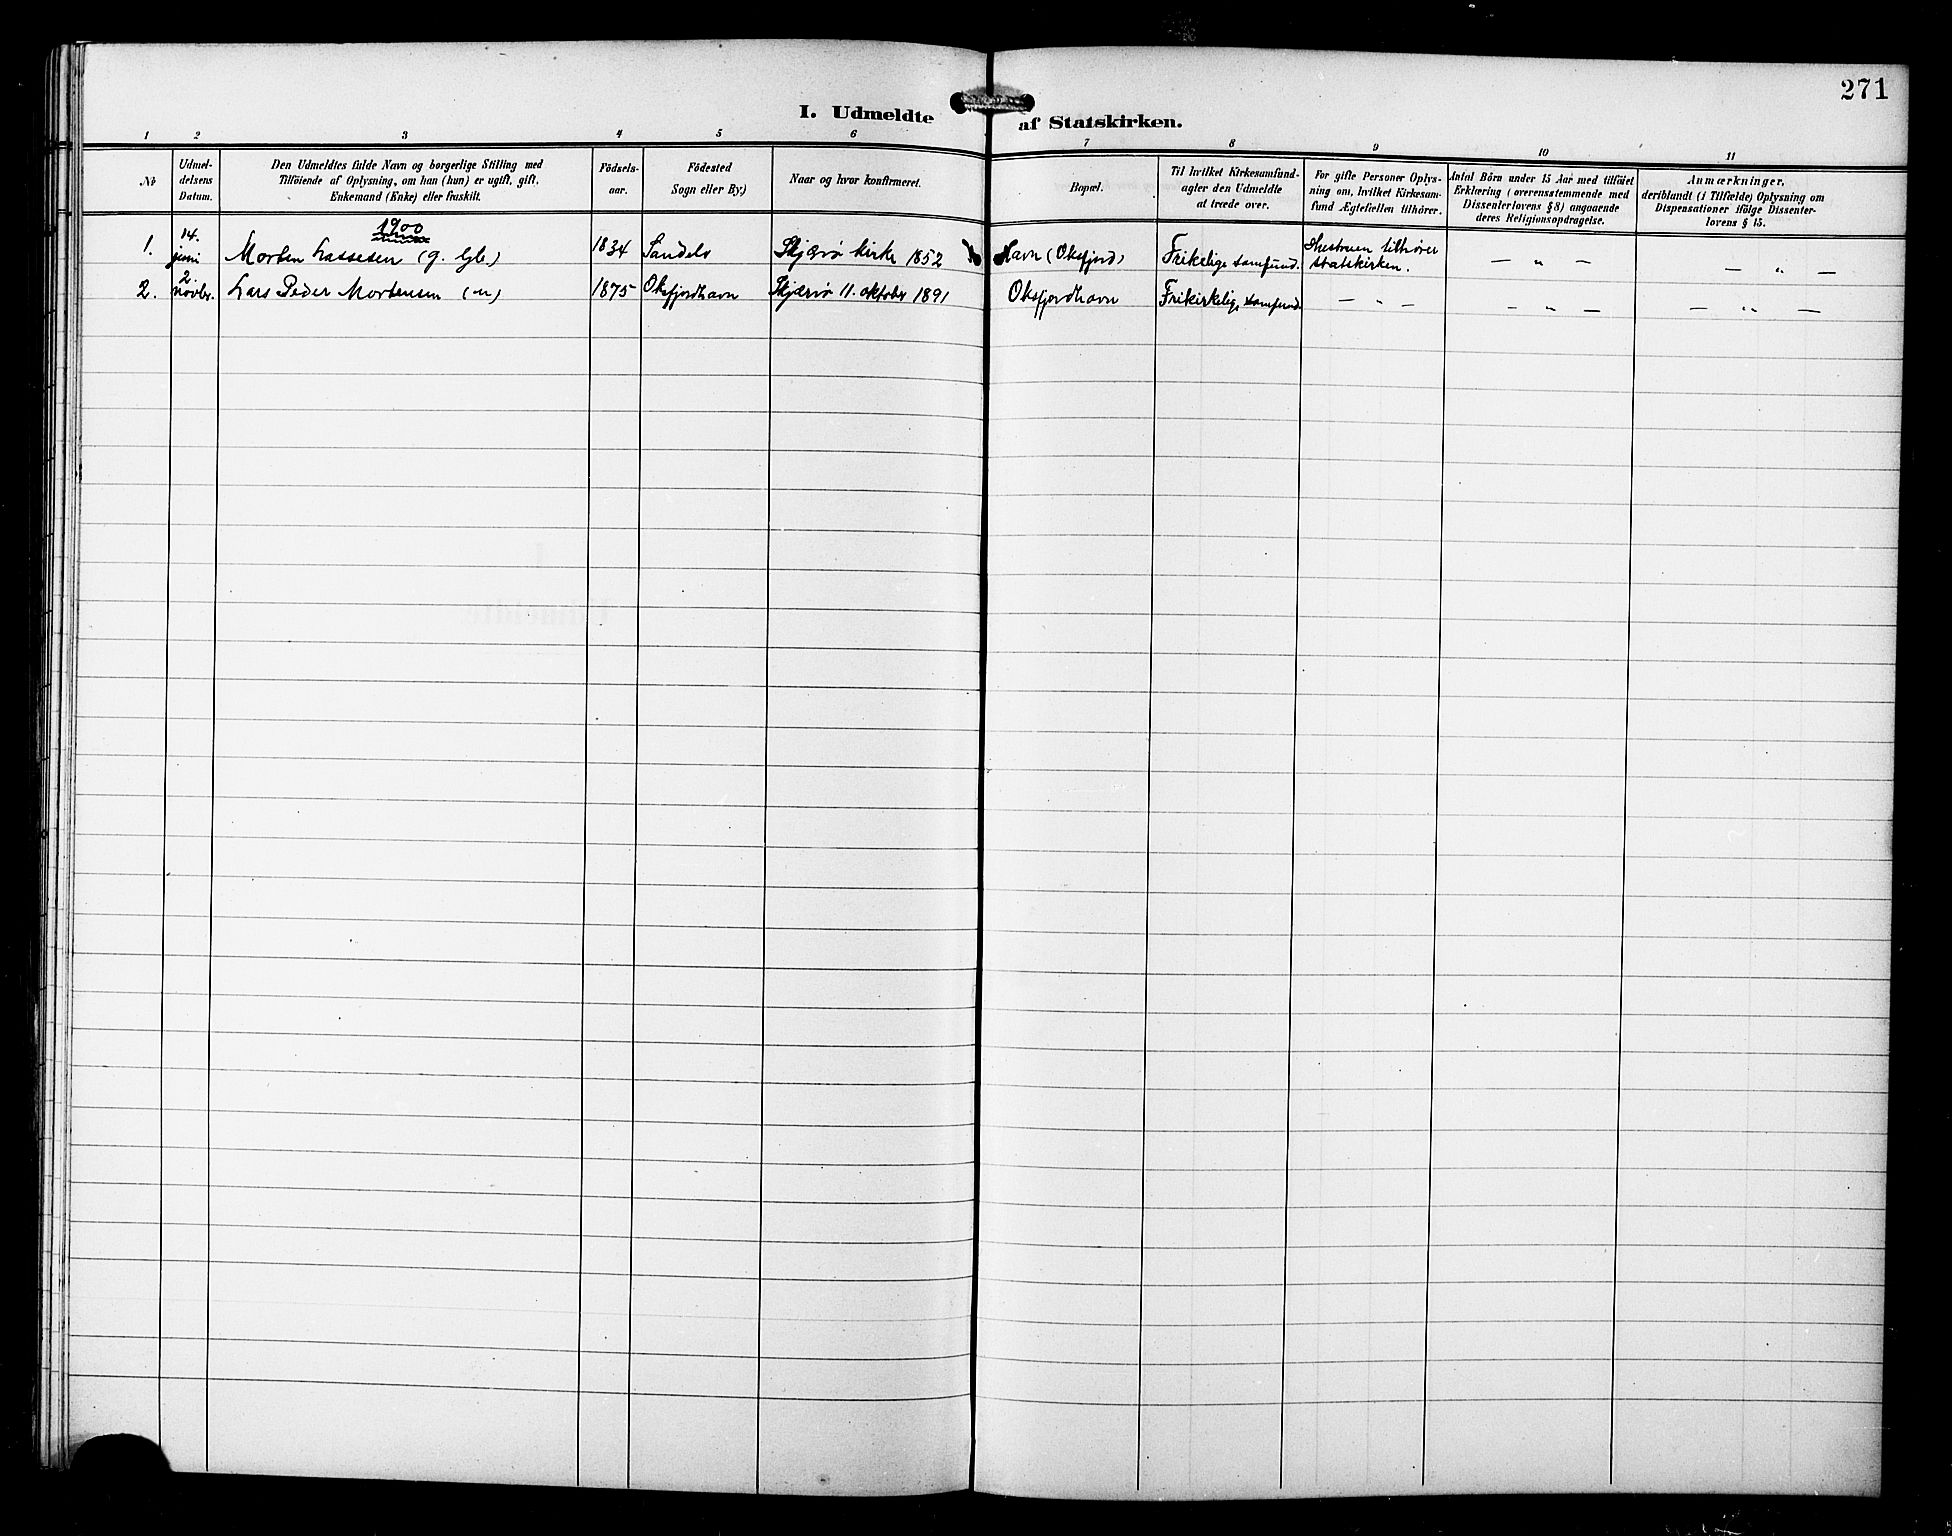 271
I. Udmeldte af Statskirken.
1 2 3 4 5 6 7 8 9 10 11
No
Udmel-
delsens
Datum.
Den Udmeldtes fulde Navn og borgerlige Stilling med
Tilföiende af Oplysning, om han (hun) er ugift, gift,
Enkemand (Enke) eller fraskilt.
Födsels-
aar.
Födested
Sogn eller By.)
Naar og hvor konfirmeret.
Bopæl.
Til hvilket Kirkesamfund
agter den Udmeldte
at træde over.
For gifte Personer Oplys-
ning om, hvilket Kirkesam-
fund Ægtefællen tilhörer.
Antal Börn under 15 Aar med tilföiet
Erklæring (overensstemmende med
Dissenterlovens § 8) angaaende
deres Religionsopdragelse.
Anmærkninger,
deriblandt (i Tilfælde) Oplysning om
Dispensationer ifölge Dissenter-
lovens § 15.
1900
1. 14. juni Morten Lassesen (g. 1834 Sandels Skjærvø kirke 1852 Havn (Oksfjord) Frikelige samfund. Hustruen tilhører statskirken. — " — — " —
2. 2. novbr. Lars Peder Mortensen (u) 1875 Oksfjordhavn Skjærvø 11. oktober 1891 Oksfjordhavn Frikirkelige samfund. — " — — " — — " —